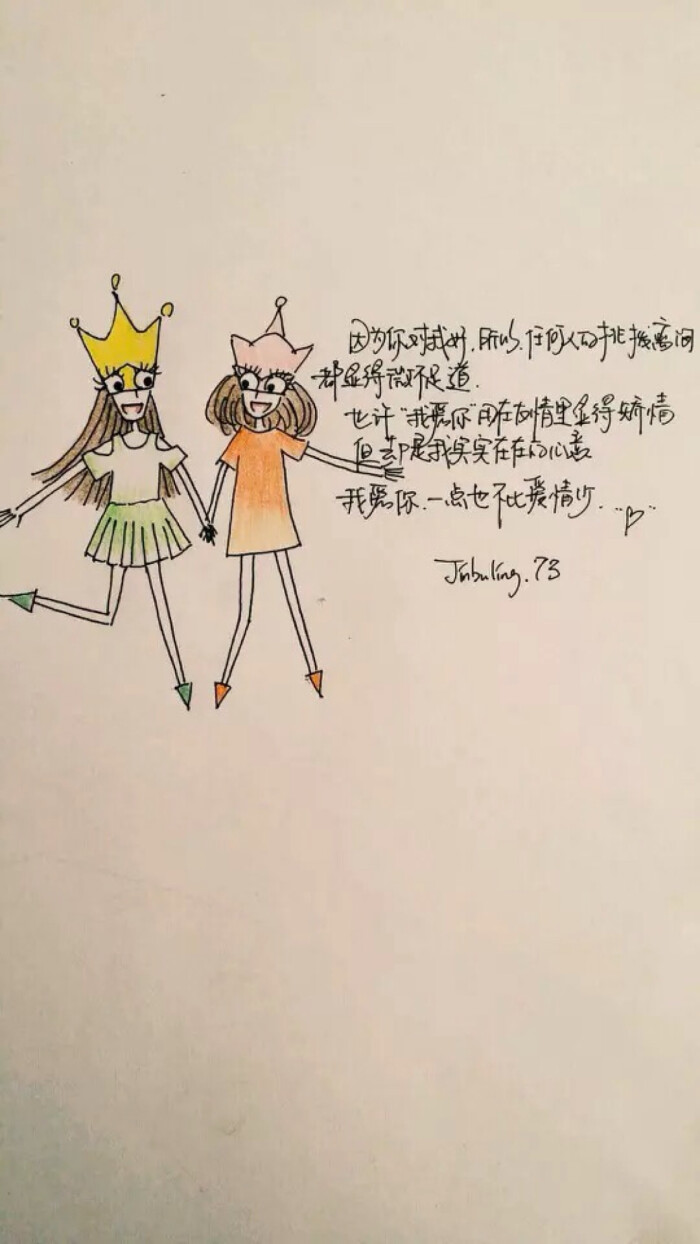 因为你对我好,所以,任何人的挑拨离间
都显得微不足道.
也许"我爱你"用在友情里显得矫情
但却是我实实在在的心意
我爱你.一点也不比爱情少.
Jinbuling.73